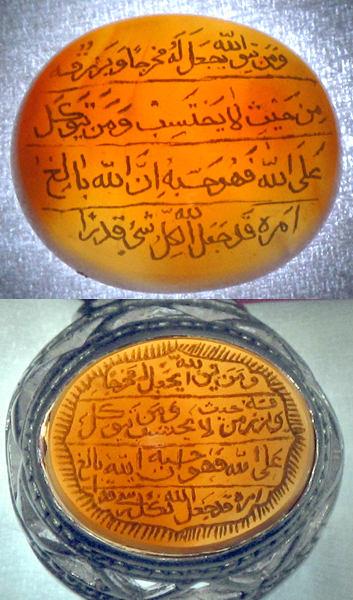 وَمَن يَتَّقِ اللَّه يَجعَل لَهُ مَخرَجًا وَيَرزُقهُ
مِن حَيثُ لَا يَحتَسِب وَمَن يَتَوَكَّل
عَلَى اللَّه فَهُوَ حَسبُهُ اِنَّ اللَّه بَالِغُ
امرِهِ قَد جَعَلَ اللَّه لِكُلِّ شَيءٍ قَدرًا
وَمَن يَتَّقِ اللَّه يَجعَل مَخرَجًا
وَيَرزُقهُ مِن حَيثُ لَا يَحتَسِب وَمَن يَتَوَكَّل
عَلَى اللَّه فَهُوَ حَسبُهُ اِنَّ اللَّه بَالِغُ
امرِهِ قَد جَعَلَ اللَّه لِكُلِّ